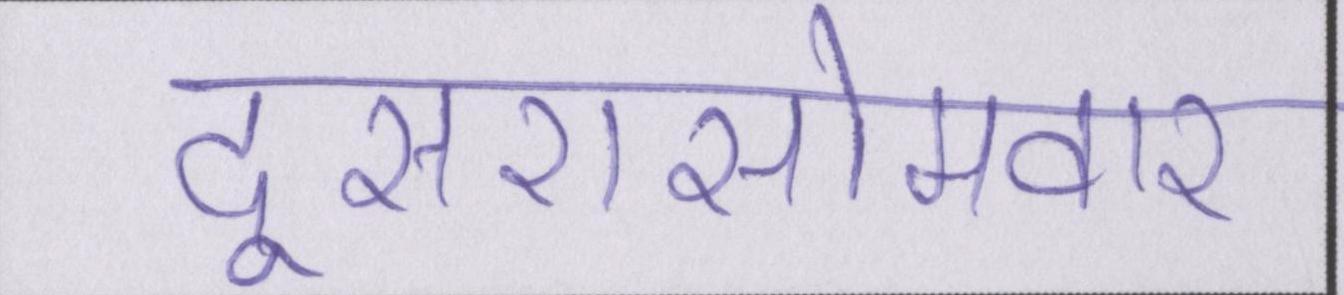 दूसरासोमवार